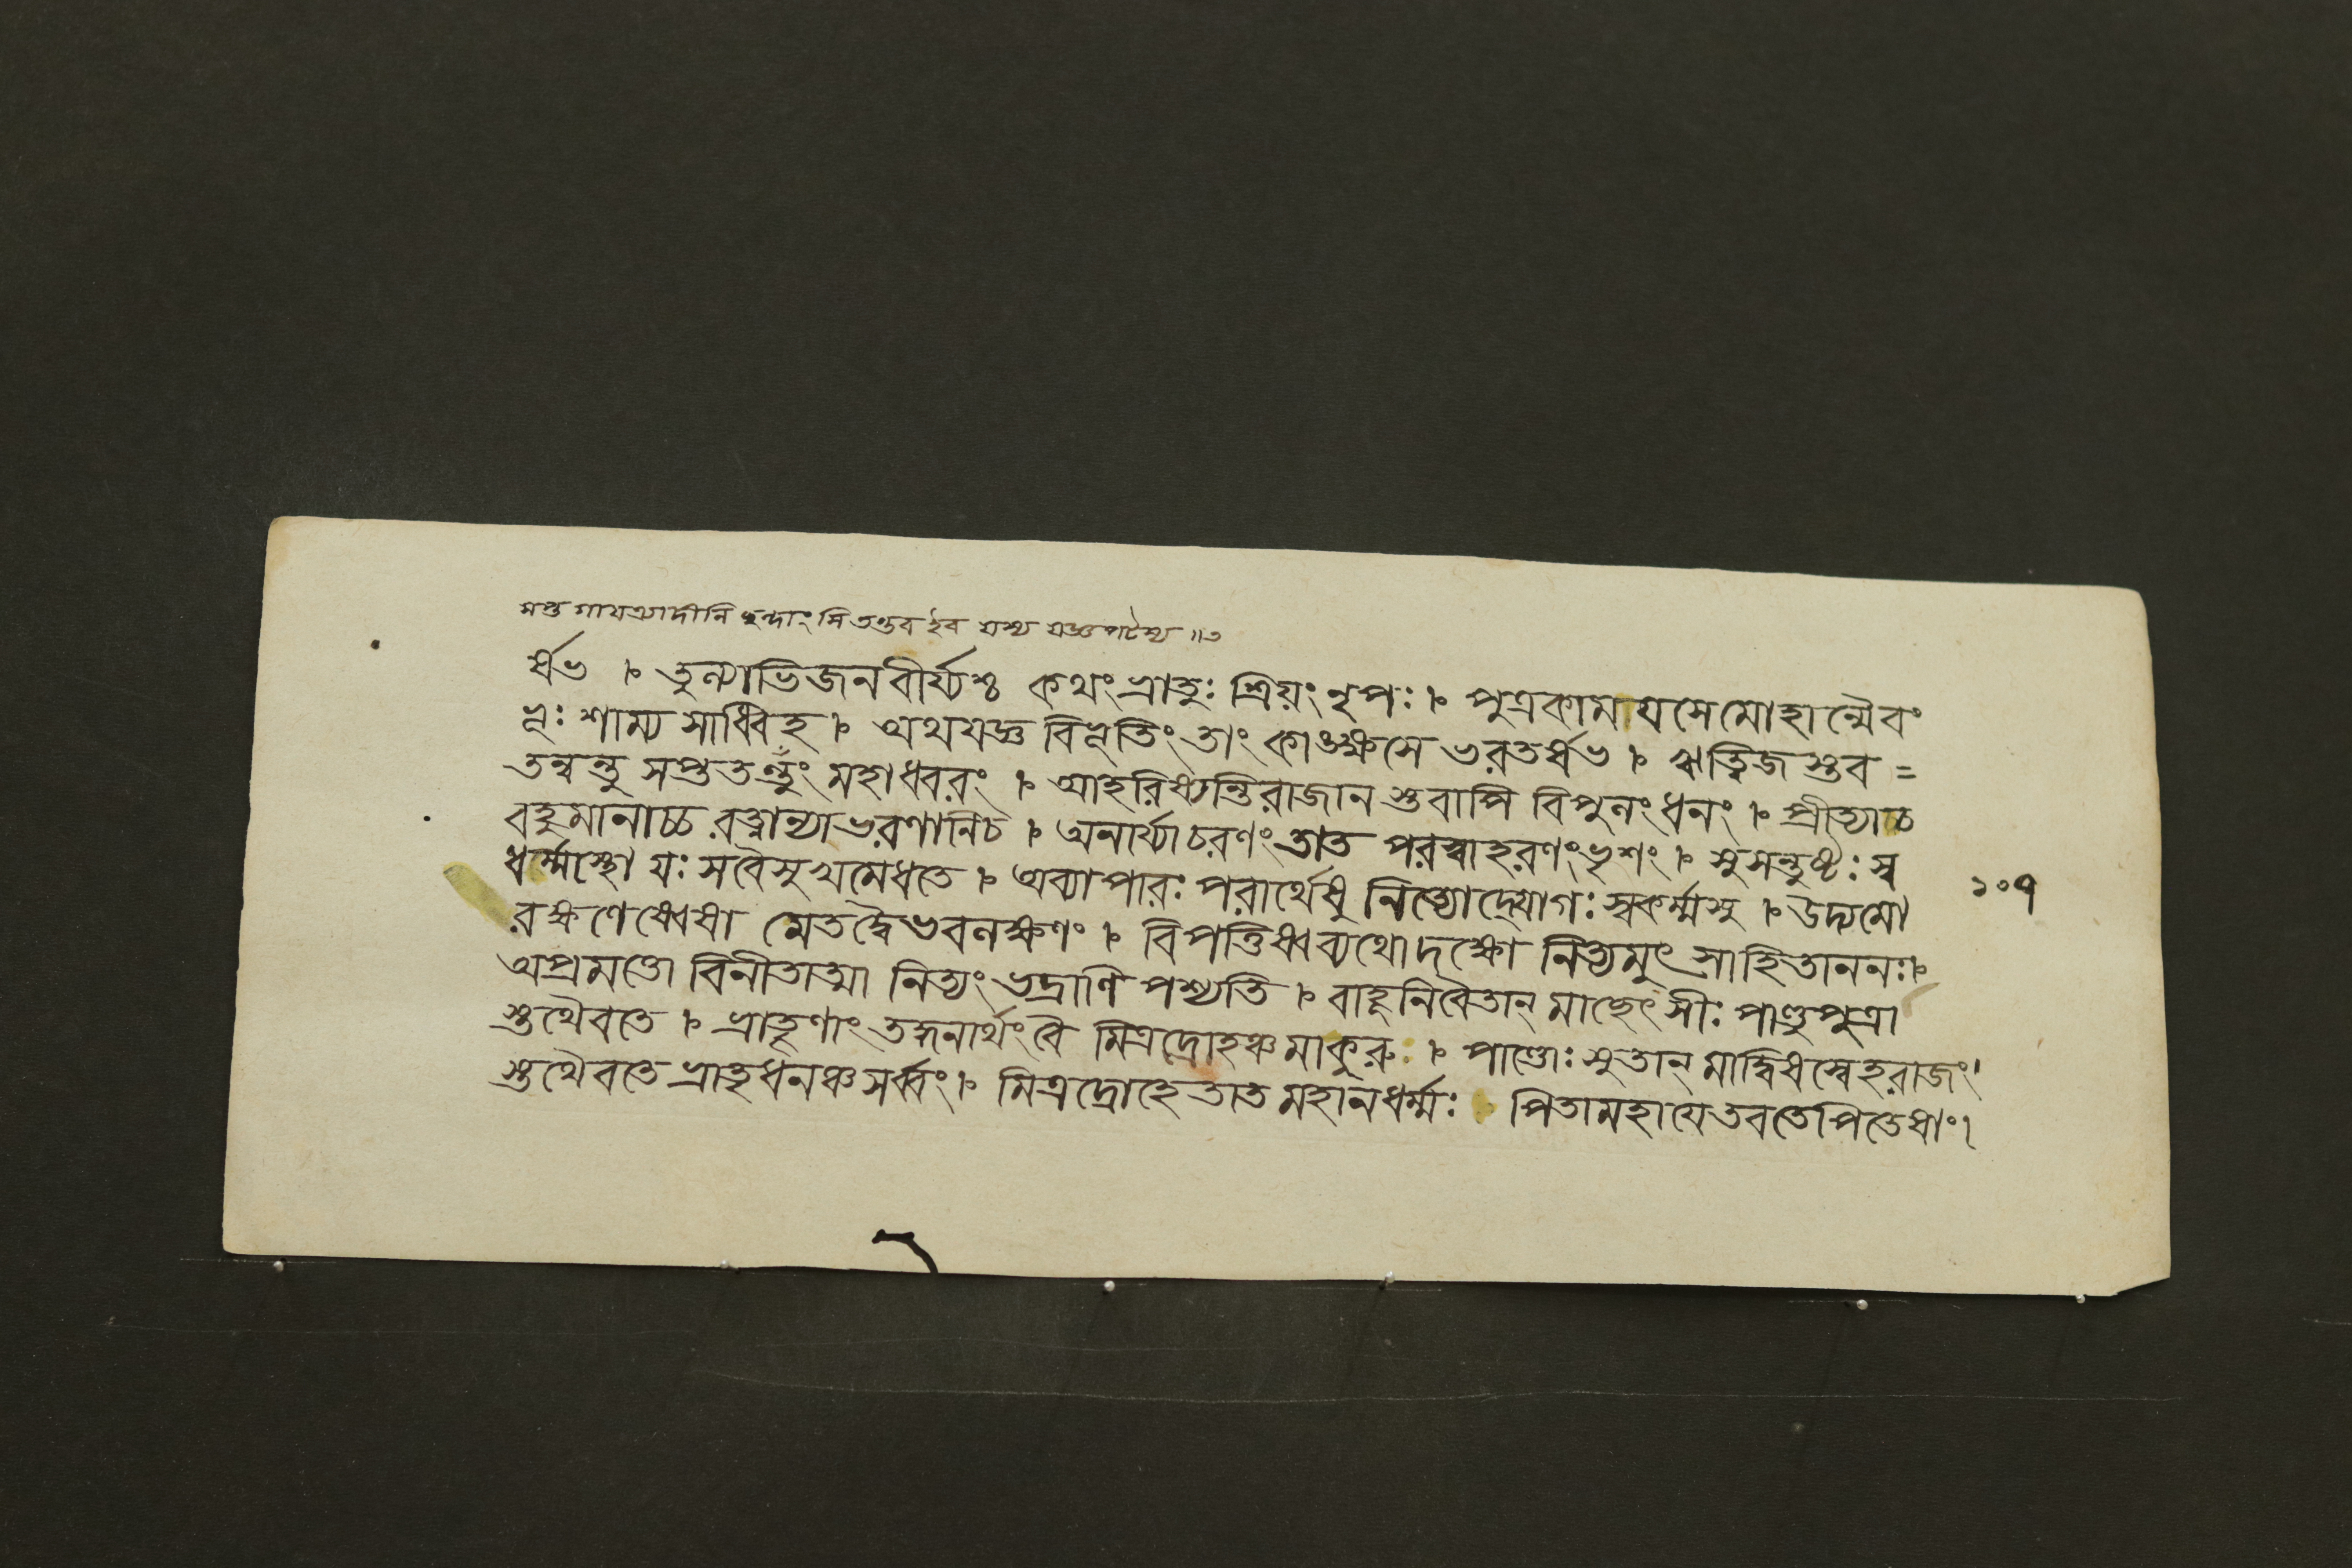 সপ্ত গাযত্র্যাদীনি ছন্দাংসি তন্তব ইব যস্য যজ্ঞপটস্য ॥৩
র্ষভ । তুল্যাভিজনবীর্য্যশ্চ কথংভ্রাতুঃ শ্রিয়ংনৃপঃ । পুত্রকাময়সেমোহান্মৈবং
ভূঃ শাম্য সাধ্বিহ । অথযজ্ঞ বিভূতিং তাং কাঙক্ষসে ভরতর্ষভ । ঋত্বিজ স্তব =
তন্বন্তু সপ্ততন্তুং মহাধ্বরং । আহরিষ্যন্তিরাজান স্তবাপি বিপুলংধনং । প্রীত্যাচ
বহুমানাচ্চ রত্নান্যাভরণানিচ । অনার্য্যাচরণং তাত পরস্বাহরণংভৃশং । সুসন্তুষ্টঃ স্ব
ধর্ম্মস্থো যঃ সবৈসুখমেধতে । অব্যাপারঃ পরার্থেষু নিত্যোদ্যোগঃ স্বকর্ম্মসু । উদ্যমো
রক্ষণেষ্বেষা মেতদ্বৈভবলক্ষণং । বিপত্তিষ্বব্যথোদক্ষো নিত্যমুৎসাহিতাননঃ।
অপ্রমত্তো বিনীতাত্মা নিত্যং ভদ্রাণি পশ্যতি । বাহূনিবৈতান্ মাছেৎসীঃ পাণ্ডুপুত্রা
স্তথৈবতে । ভ্রাতৄণাং তদ্ধনার্থংবৈ মিত্রদ্রোহঞ্চমাকুরু । পাণ্ডোঃ সুতান্ মাদ্বিষস্বেহরাজং।
স্তথৈবতে ভ্রাতৃধনঞ্চসর্ব্বং । মিত্রদ্রোহে তাত মহানধর্ম্মঃ । পিতামহাযেতবতেপিতেষাং।
১০৭